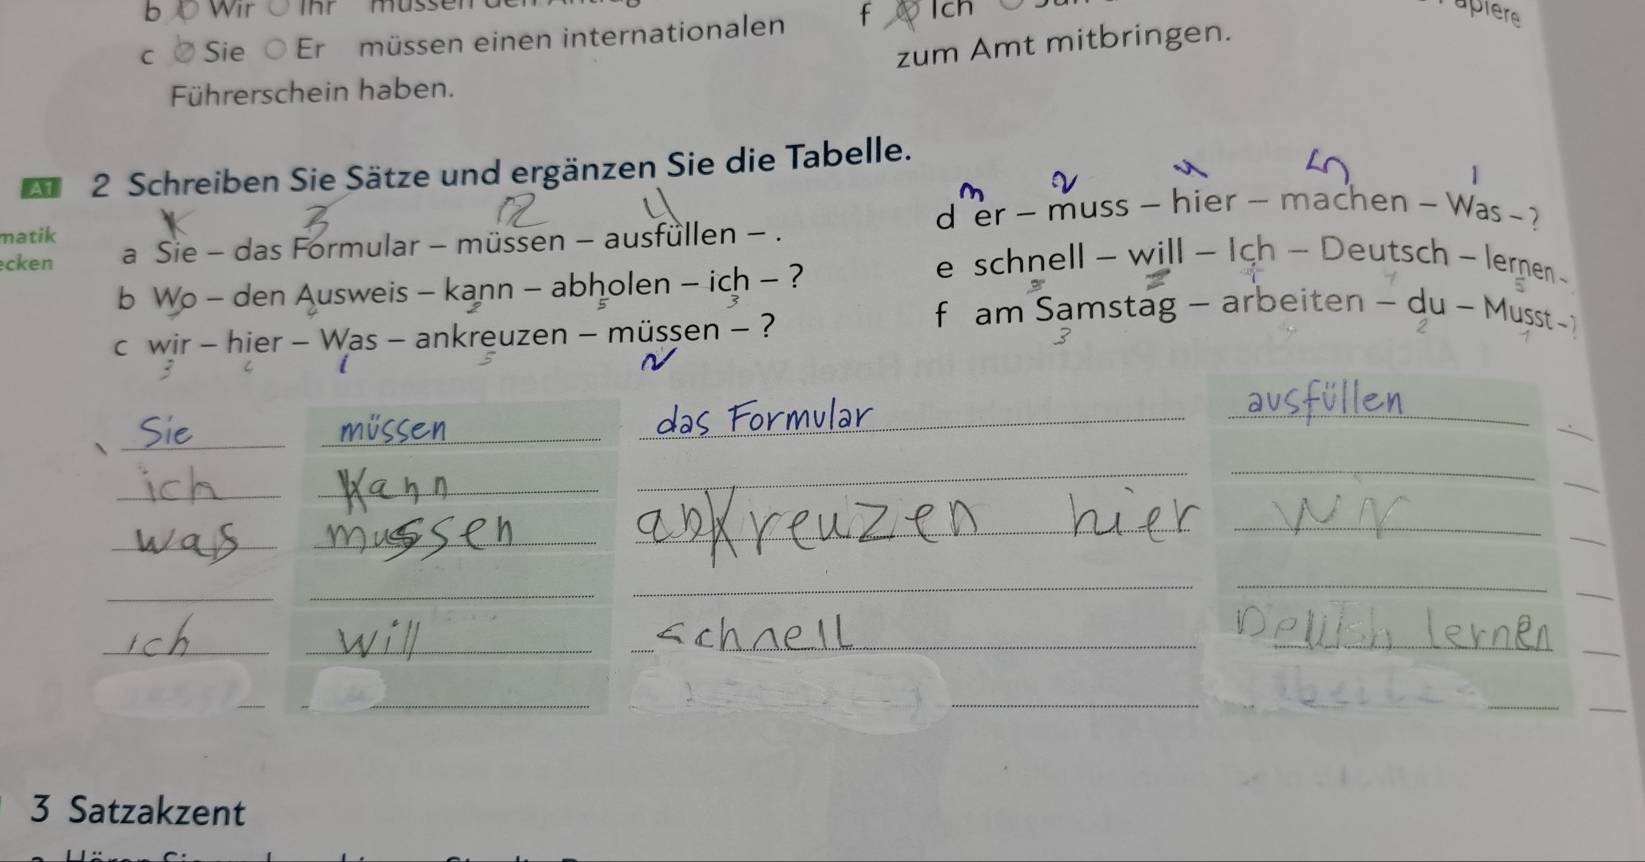 b Wir Ihr müssen den
c Sie Er müssen einen internationalen
Führerschein haben.
f Ich
zum Amt mitbringen.
A1 2 Schreiben Sie Sätze und ergänzen Sie die Tabelle.
matik
ecken
3 12 4
a Sie – das Formular – müssen – ausfüllen – .
b Wo – den Ausweis – kann – abholen – ich – ?
4 2 5 3
c wir – hier – Was – ankreuzen – müssen – ?
3 1 5 2
3 2 4 5 1
d er – muss – hier – machen – Was – ?
e schnell – will – Ich – Deutsch – lernen – .
3 2 1 4 5
f am Samstag – arbeiten – du – Musst – ?
3 2 1
Sie müssen das Formular ausfüllen
ich kann
was mussen ankreuzen hier wir
ich will schnell Deutsh lernen
3 Satzakzent